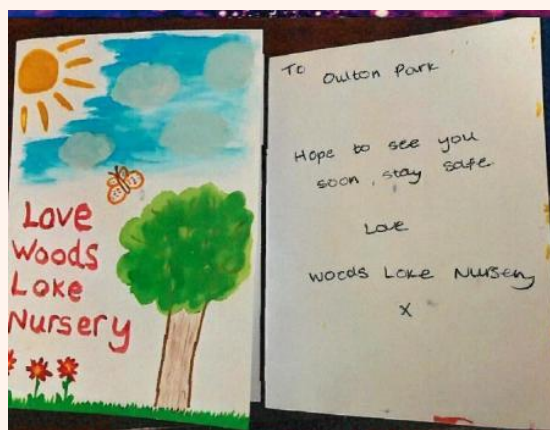 Love
Woods
Loke
Nursery
To Oulton Park
Hope to see you
soon, stay safe
Love
Woods Loke Nursery
x